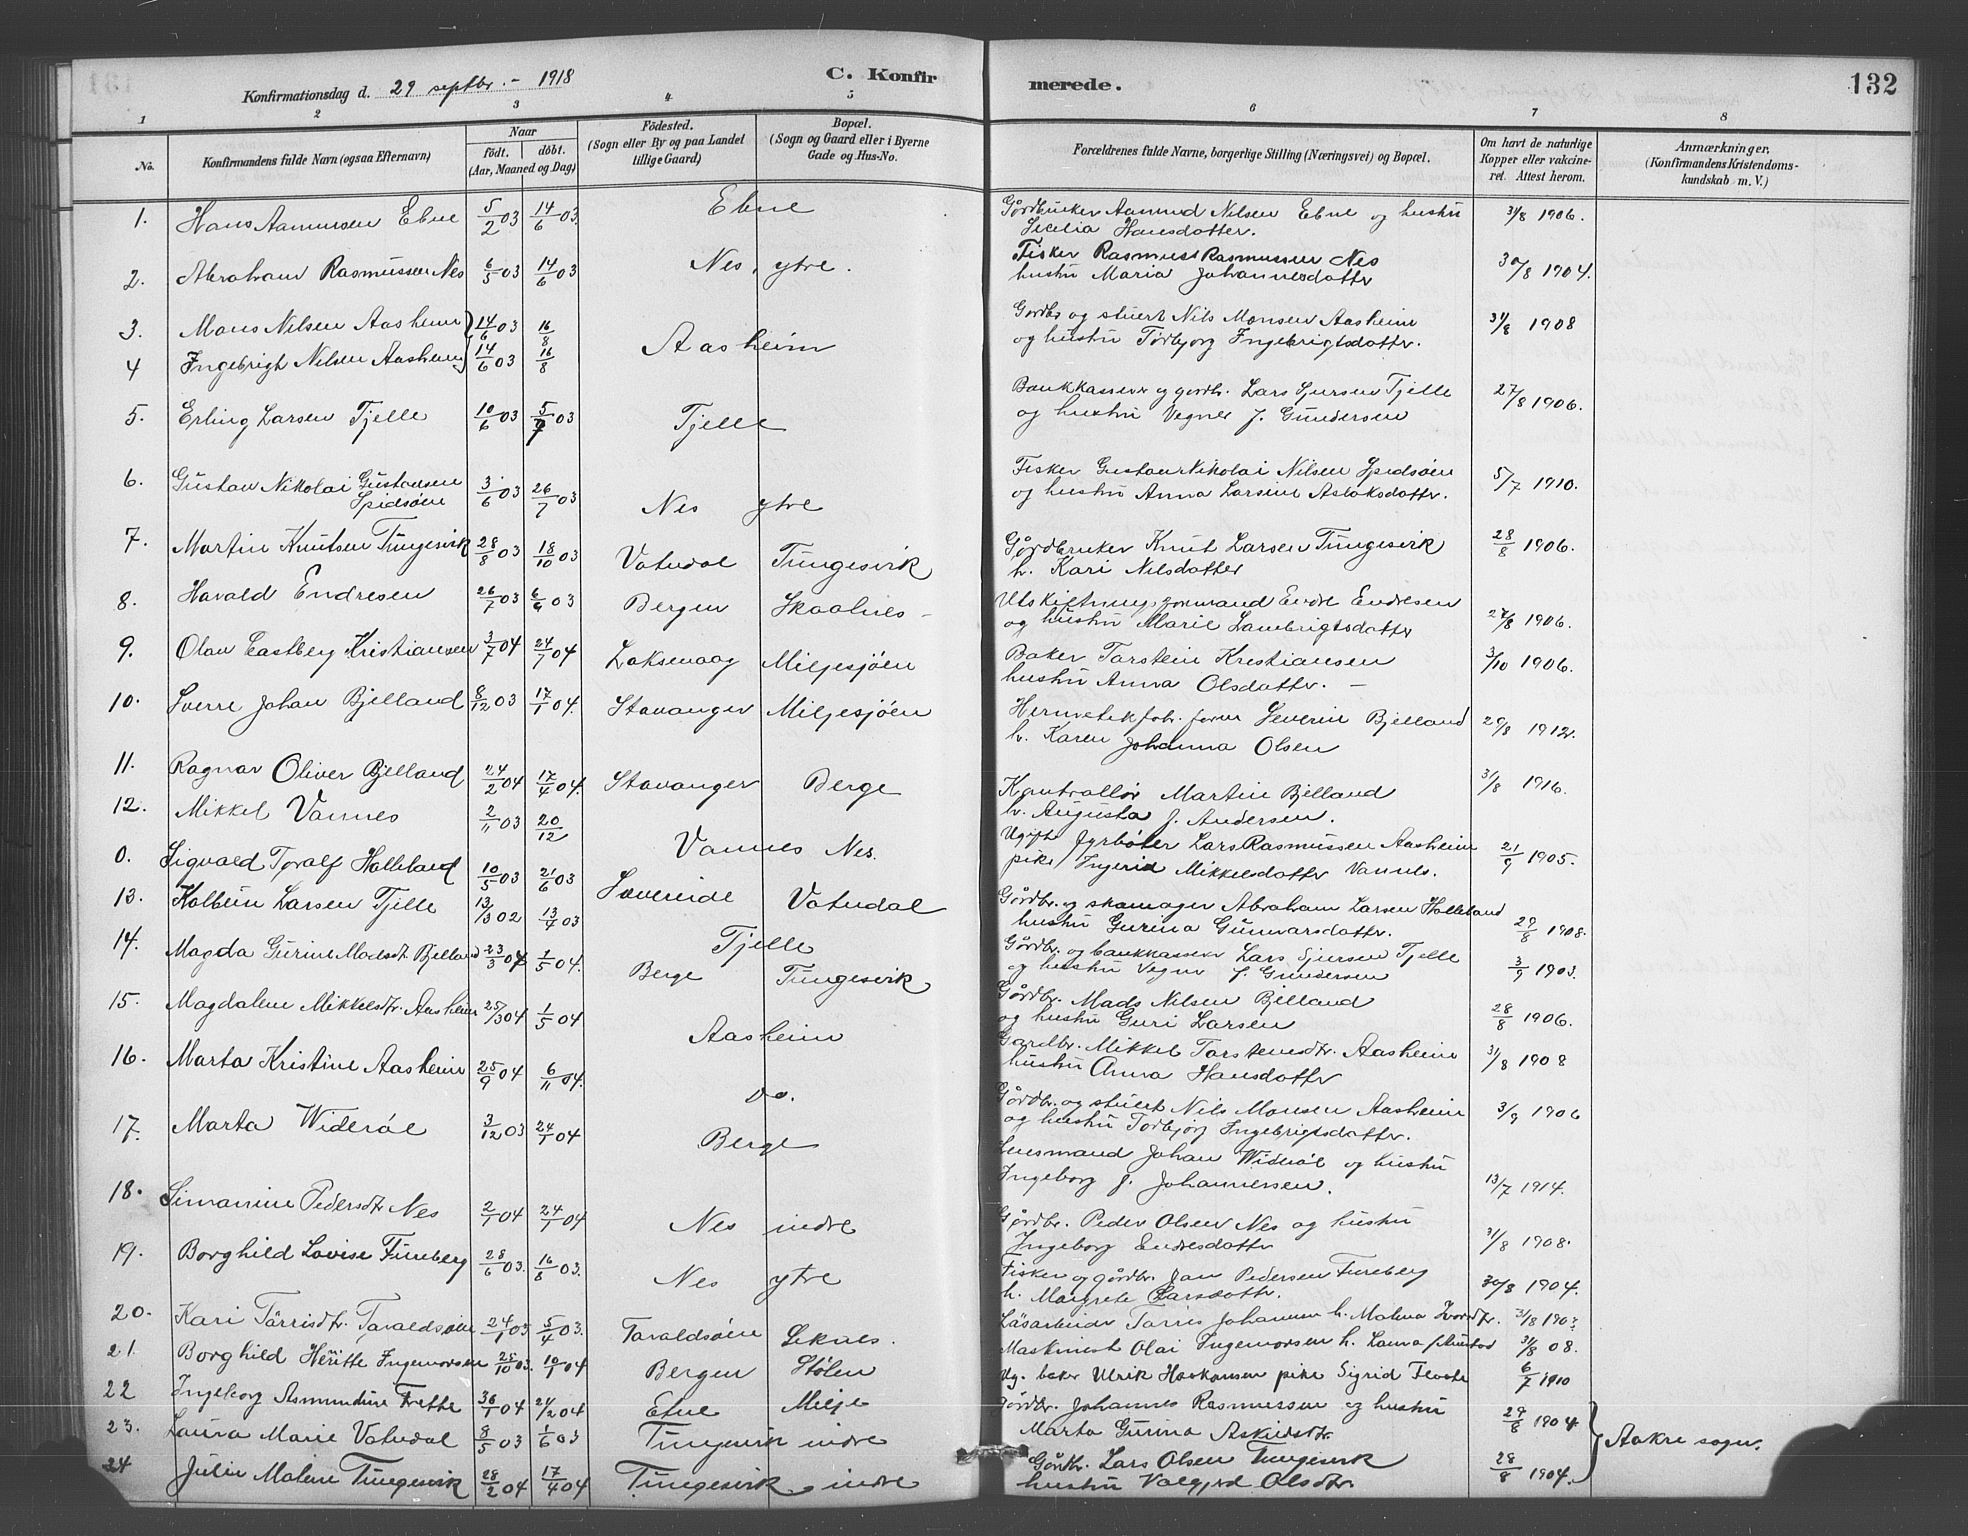 132
Konfirmationsdag d. 29 septbr. - 1918
C. Konfirmerede.
1 2 3 4 5 6 7 8
No.
Konfirmandens fulde Navn (ogsaa Efternavn)
Naar
født. døbt.
(Aar, Maaned og Dag)
Födested.
(Sogn eller By og paa Landet
tillige Gaard)
Bopæl.
(Sogn og Gaard eller i Byerne
Gade og Hus-No.
Forældrenes fulde Navne, borgerlige Stilling (Næringsvei) og Bopæl.
Om havt de naturlige
Kopper eller vakcine-
ret. Attest herom.
Anmærkninger,
(Konfirmandens Kristendoms-
kundskab m. V.)
1. Hans Aamunsen Ebne 5/2 03 14/6 03. Ebne Gårdbruker Aamund Nilsen Ebne og hustru 31/8 1906.
Secilia Hansdatter.
2. Abraham Rasmussen Nes 6/5 03 14/6 03 Nes, ytre. Fisker Rasmus Rasmussen Nes 30/8 1904.
hustru Maria Johannesdatter
3. Mons Nilsen Aasheim 14/6 03 16/8 Aasheim Gårdbr og stuert Nils Monsen Aasheim 31/8 1908
4 Ingebrigt Nilsen Aasheim 14/6 03 16/8 og hustru Torbjorg Ingebrigtsdatter.
5. Erling Larsen Tjelle 10/6 03 5/7 03 Tjelle Bankkasserer og gardbr. Lars Sjursen Tjelle 27/8 1906.
og hustru Vegner J. Gundersen
6. Gustav Nikolai Gustavsen 3/6 03 26/7 03 Nes ytre Fisker Gustav Nikolai Nilsen Spidsøen 5/7 1910.
Spidsøen og hustru Anna Larsine Aslaksdatter.
7. Martin Knutsen Tungesvik 28/8 03 18/10 03 Vatndal Tungesvik Gårdbruker Knut Larsen Tungesvik 28/8 1906.
h. Kari Nilsdatter
8. Harald Endresen 26/7 03 6/9 03 Bergen Skaalnes - Utskiftningsformand Endre Endresen 27/8 1906.
og hustru Marie Lambrigtsdatter
9. Olav Eastberg Kristiansen 3/7 04 24/7 04 Laksevaag Miljesjøen Baker Torstein Kristiansen 3/10 1906.
hustru Anna Olsdatter. -
10. Sverre Johan Bjelland 8/12 03 17/1 04. Stavanger Miljesjøen Hermetikfabr. form Severin Bjelland 29/8 1912.
h. Karen Johanna Olsen
11. Ragnar Oliver Bjelland 24/2 04 17/4 04. Stavanger Berge Kontrollør Martin Bjelland 31/8 1916.
h. Augusta J. Andersen.
12. Mikkel Vannes 2/11 03 20/12 Vannes Nes. Ugift fyrbøter Lars Rasmussen Aasheim 21/9 1905.
pike Ingerid Mikkelsdatter Vannes.
0. Sigvald Toralf Halleland 10/5 03 21/6 03 Sævereide Vatndal Gårdbr. og skomager Abraham Larsen Halleland 29/8 1908.
hustru Gurina Gunnarsdatter.
13. Kolbein Larsen Tjelle 13/3 02 13/4 03 Tjelle Gårdbr. og bankkasserer Lars Sjursen Tjelle 3/9 1903.
og hustru Vegner J. Gundersen
14. Magda Gurine Madsdt. Bjelland 23/3 04 1/5 04. Berge Tungesvik Gårdbr. Mads Nilsen Bjelland 28/8 1906.
og hustru Guri Larsen
15. Magdalene Mikkelsdtr. Aasheim 25/3 04 1/5 04 Aasheim Gardbr. Mikkel Torstensdtr. Aasheim 31/8 1908
hustru Anna Hansdatter
16. Marta Kristine Aasheim 25/9 04 6/11 04. Do. Gårdbr. og stuert Nils Monsen Aasheim 3/9 1906
og hustru Torbjørg Ingebrigtsdatter.
17. Marta Widerøe 3/12 03 24/1 04 Berge Lensmand Johan Widerøe og hustru 13/7 1914.
Ingeborg J. Johannessen.
18. Simanine Pedersdtr Nes 2/1 04 24/1 04 Nes indre Gårdbr. Peder Olsen Nes og hustru 31/8 1908.
Ingeborg Endresdatter
19. Borghild Lovise Fureberg 28/6 03. 16/8 03. Nes ytre Fisker og gårdbr. Jan Pedersen Fureberg 30/8 1904.
h. Margrete Larsdottr.
20. Kari Tørrisdtr. Taraldsøen 24/1 03 5/4 03. Taraldsøen Seknes. Løsarbeider Tørris Johannsen h. Malena 31/8 190
21. Borghild Ingemorsen 25/10 03. 10/1 04 Bergen Stølen Maskinist Olai Ingemorsen h. Laura 31/8 08.
22 Ingeborg Asmundine Frette 30/1 04 21/2 04 Etne Milje Ug. baker Ulrik Haakonsen pike Sigrid 6/7 1910
23. Laura Marie Vatndal 8/5 03 1/6 03 Tungesvik indre Gårdbr. Johannes Rasmussen og hustru 29/8 1904.
Marta Gurina Askildsdtr. Aakre sogn.
24 Julie Malene Tungesvik 28/2 04 17/4 04 Tungesvik indre Gårdbr. Lars Olsen Tungesvik 28/8 1904.
hustru Valgjerd Olsdtr.